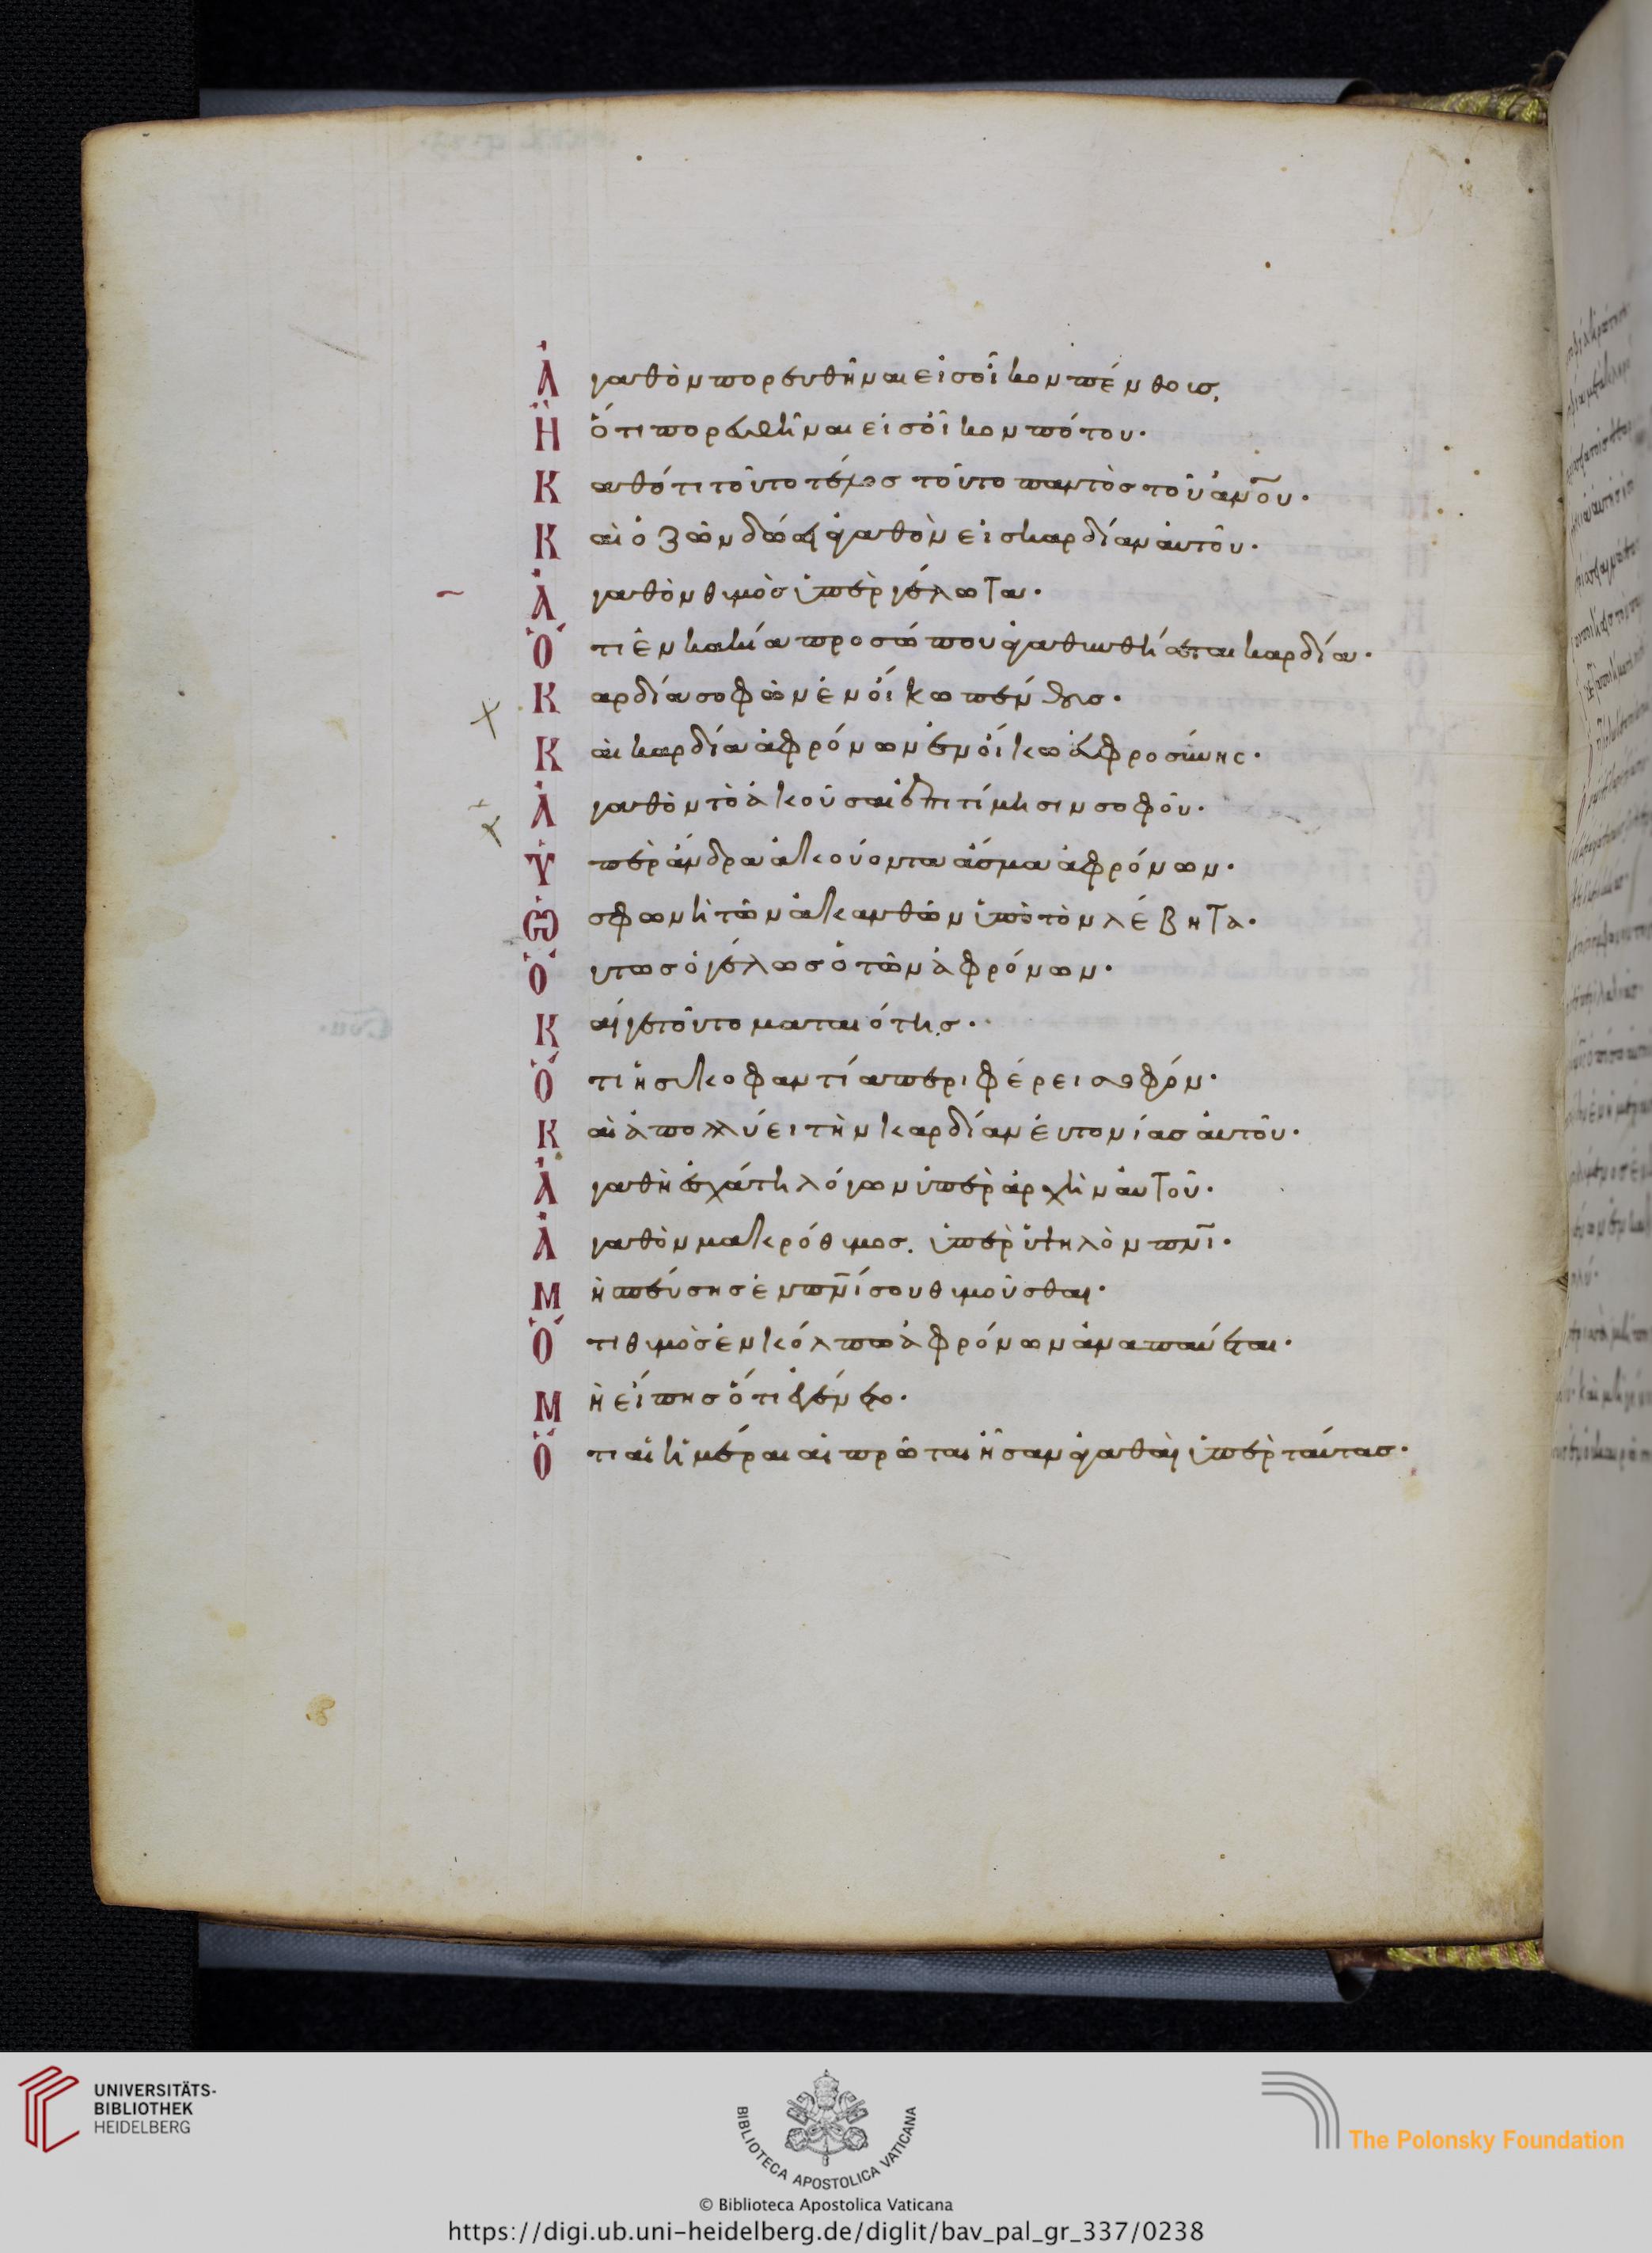 Ἀγαθὸν πορευθῆναι εἰς οἶκον πένθους,
Ἢ ὅτι πορευθῆναι εἰς οἶκον πότου·
Καθότι τοῦτο τέλος τοῦτο παντὸς τοῦ ἀν̅ου·
Καὶ ὁ ζῶν δώσει ἀγαθὸν εἰς καρδίαν αὐτοῦ·
Ἀγαθὸν θυμὸς ὑπὲρ γέλωτα·
Ὅτι ἐν κακία προσώπου ἀγαθυνθήσεται καρδία·
Καρδία σοφῶν ἐν οἴκω πένθους·
Καὶ καρδία ἀφρόνων ἐν οἴκω εὐφροσύνης·
Ἀγαθὸν τὸ ἀκοῦσαι ἐπιτίμησιν σοφοῦ·
Ὑπὲρ ἄνδρα ἀκούοντα ἆσμα ἀφρόνων·
Ὡς φωνὴ τῶν ἀκανθῶν ὑπὸ τὸν λέβητα·
Οὕτως ὁ γέλως ὁ τῶν ἀφρόνων·
Καί γε τοῦτο ματαιότης·
Ὅτι ἡ συκοφαντία περιφέρει σοφόν·
Καὶ ἀπολλύει τὴν καρδίαν εὐτονίας αὐτοῦ·
Ἀγαθὴ ἐσχάτη λόγων ὑπὲρ ἀρχὴν αὐτοῦ·
Ἀγαθὸν μακρόθυμος. ὑπὲρ ὑψηλὸν πν̅ι·
Μὴ σπεύσης ἐν πν̅ί σου θυμοῦσθαι·
Ὅτι θυμὸς ἐν κόλπω ἀφρόνων ἀναπαύσεται·
Μὴ εἴπης ὅτι ἐγένετο·
Ὅτι αἱ ἡμέραι αἱ πρῶται ἦσαν ἀγαθαὶ ὑπὲρ ταύτας·
UNIVERSITÄTS-
BIBLIOTHEK
HEIDELBERG
BIBLIOTECA APOSTOLICA VATICANA
The Polonsky Foundation
© Biblioteca Apostolica Vaticana
https://digi.ub.uni-heidelberg.de/diglit/bav_pal_gr_337/0238